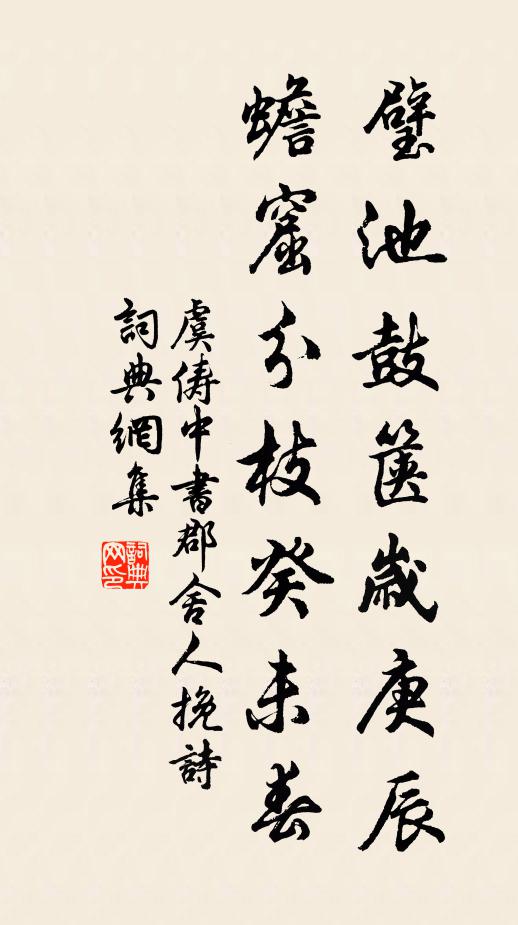 璧池鼓篋歲庚辰
蟾窟分枝癸未春
虞儔中書郡舍人挽詩
詞典網集
詞典网印